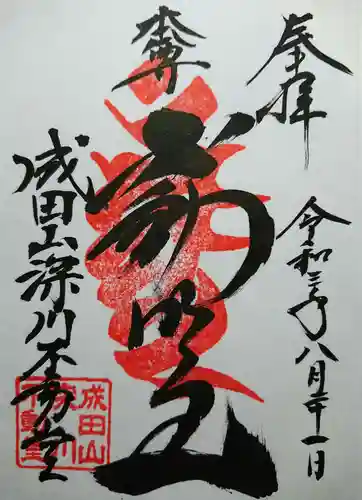 奉拝
令和三年八月二十一日
本尊
新明王
成田山深川不動堂
成田山
深川
不動堂